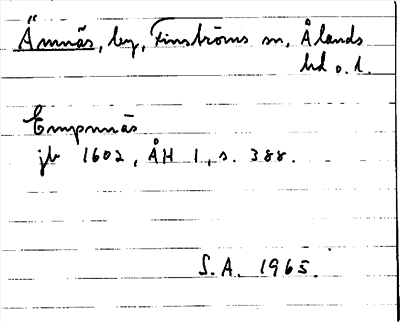 Ämnäs, by, Finströms sn, Ålands
hd o. l.
Empnäs
jb 1602, ÅH 1, s. 388.
S.A. 1965.